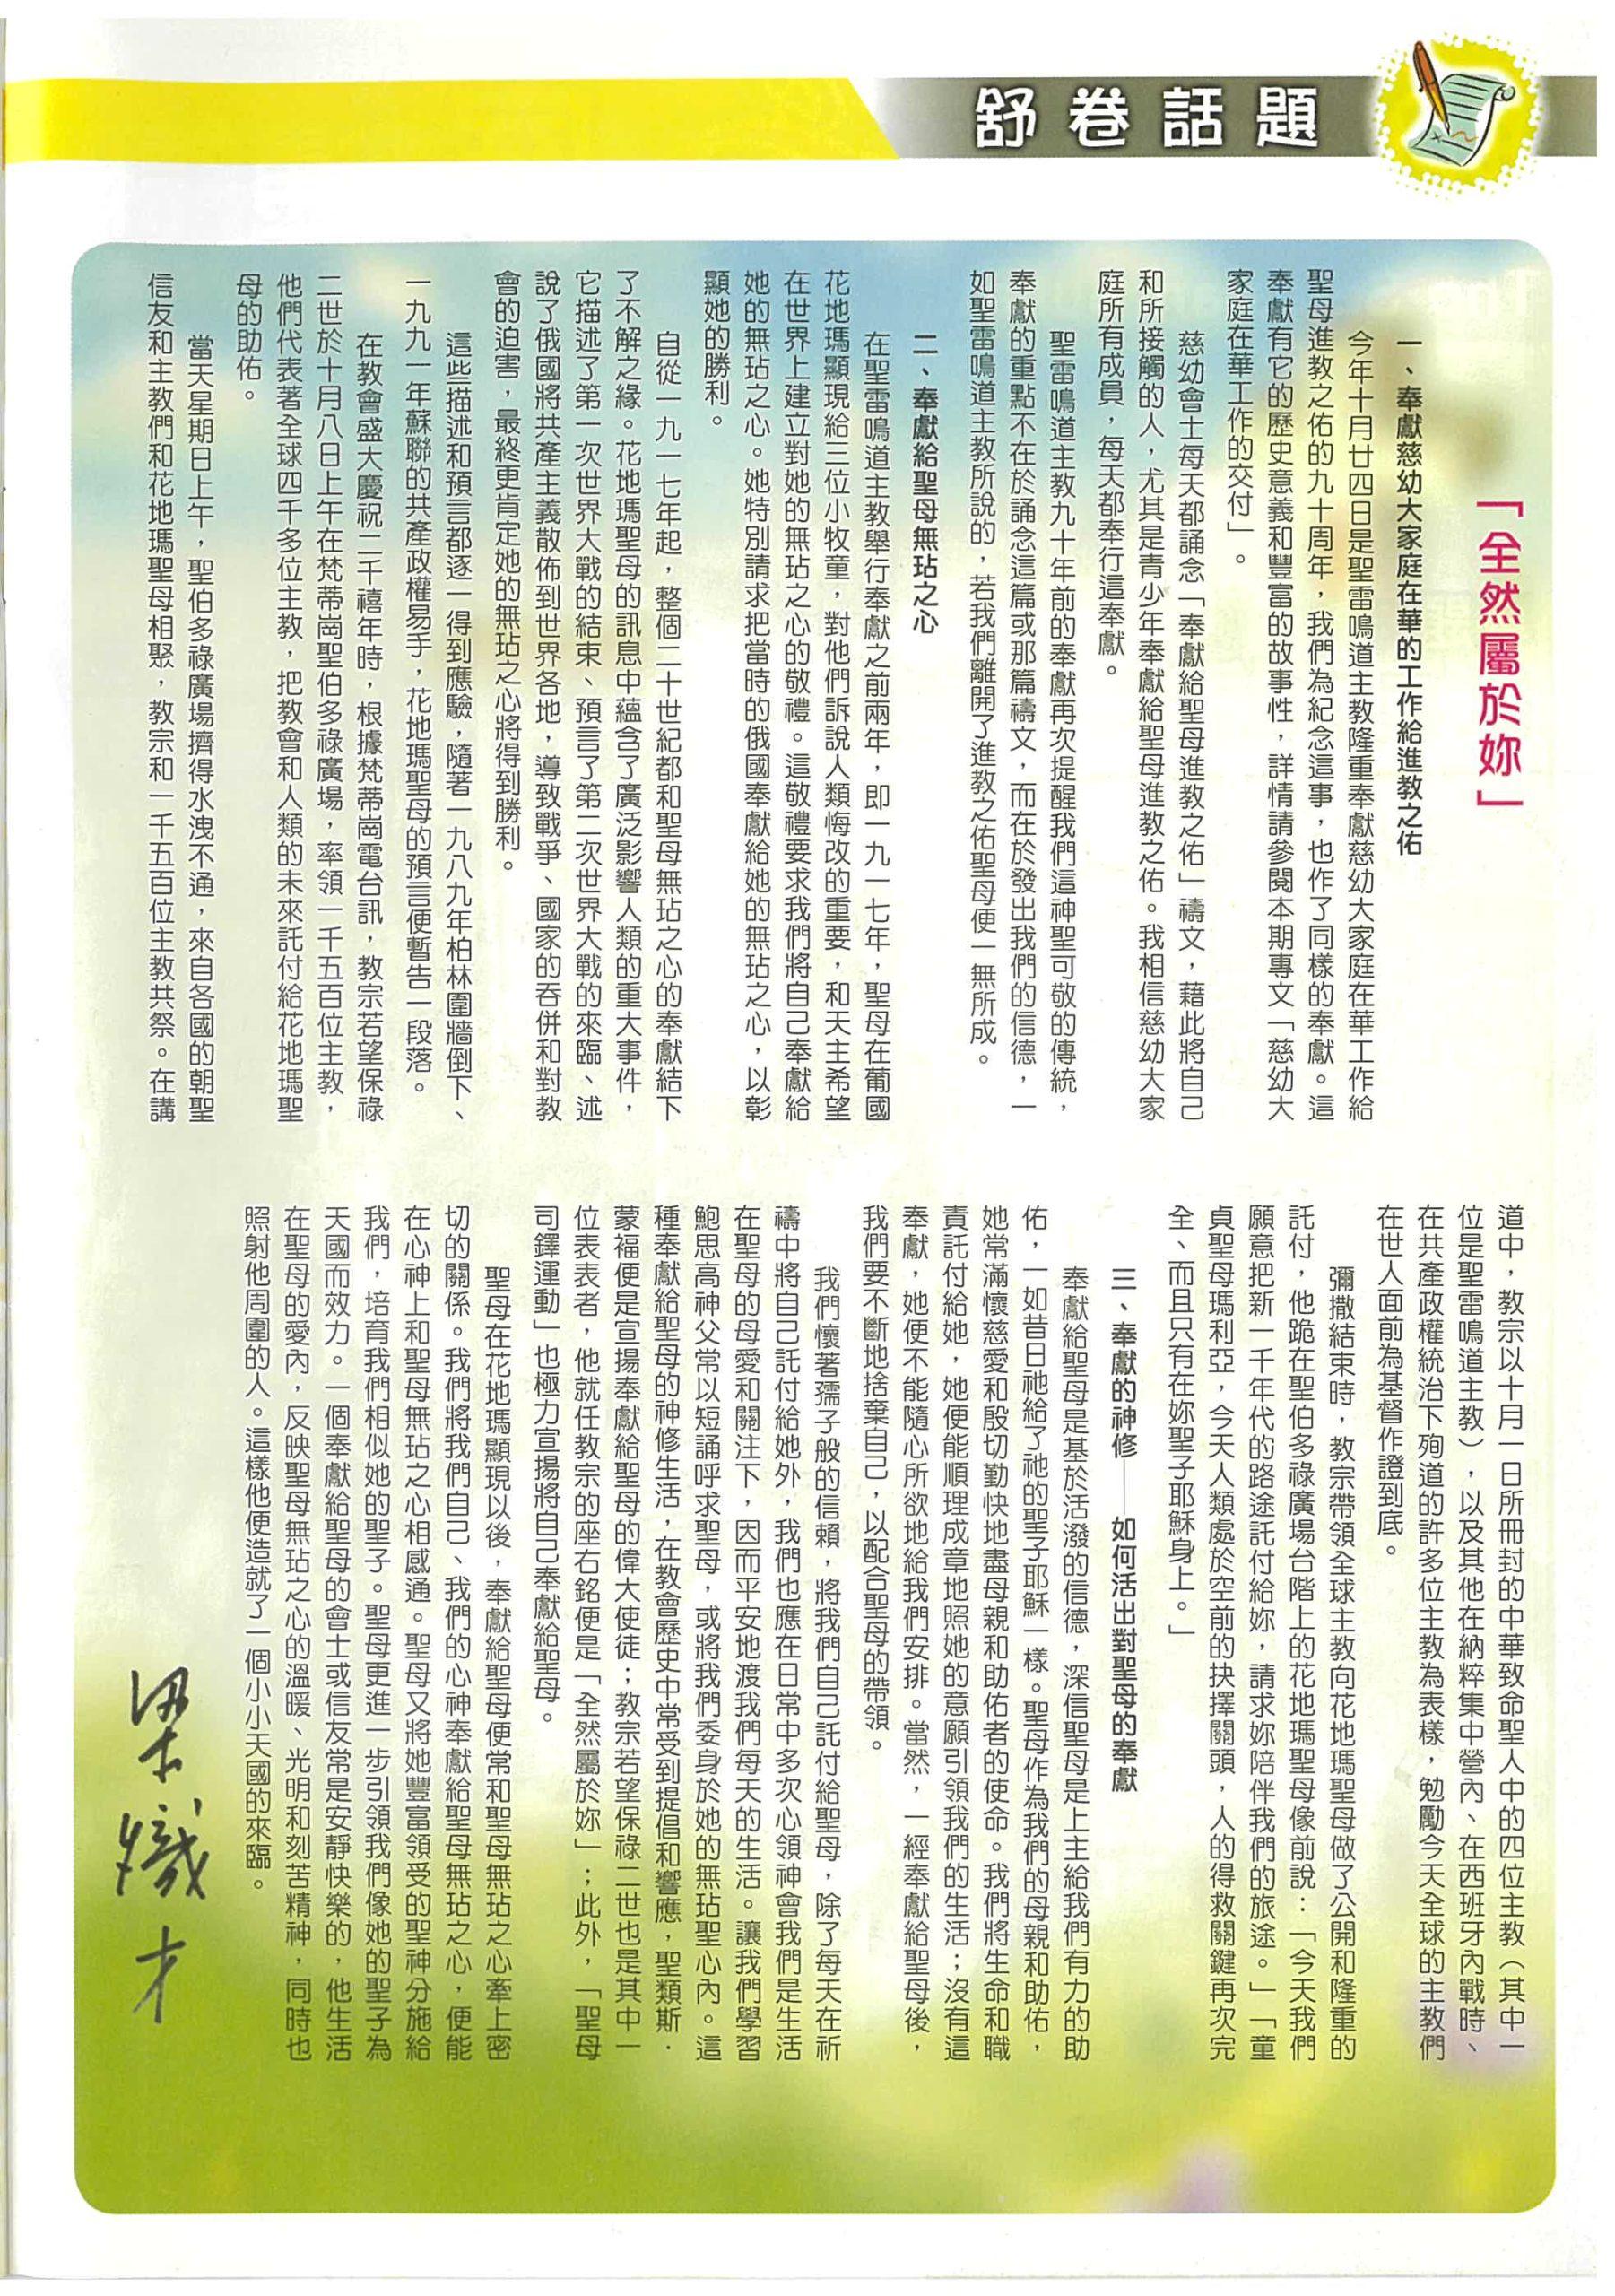 舒卷話題
「全然屬於妳」
一、奉獻慈幼大家庭在華的工作給進教之佑
今年十月廿四日是聖雷鳴道主教隆重奉獻慈幼大家庭在華工作給
聖母進教之佑的九十周年，我們為紀念這事，也作了同樣的奉獻。這
奉獻有它的歷史意義和豐富的故事性，詳情請參閱本期專文「慈幼大
家庭在華工作的交付」。
慈幼會士每天都誦念「奉獻給聖母進教之佑」禱文，藉此將自己
和所接觸的人，尤其是青少年奉獻給聖母進教之佑。我相信慈幼大家
庭所有成員，每天都奉行這奉獻。
聖雷鳴道主教九十年前的奉獻再次提醒我們這神聖可敬的傳統，
奉獻的重點不在於誦念這篇或那篇禱文，而在於發出我們的信德，一
如聖雷鳴道主教所說的，若我們離開了進教之佑聖母便一無所成。
二、奉獻給聖母無玷之心
在聖雷鳴道主教舉行奉獻之前兩年，即一九一七年，聖母在葡國
花地瑪顯現給三位小牧童，對他們訴說人類悔改的重要，和天主希望
在世界上建立對她的無玷之心的敬禮。這敬禮要求我們將自己奉獻給
她的無玷之心。她特別請求把當時的俄國奉獻給她的無玷之心，以彰
顯她的勝利。
自從一九一七年起，整個二十世紀都和聖母無玷之心的奉獻結下
了不解之緣。花地瑪聖母的訊息中蘊含了廣泛影響人類的重大事件，
它描述了第一次世界大戰的結束、預言了第二次世界大戰的來臨、述
說了俄國將共產主義散佈到世界各地，導致戰爭、國家的吞併和對教
會的迫害，最終更肯定她的無玷之心將得到勝利。
這些描述和預言都逐一得到應驗，隨著一九八九年柏林圍牆倒下、
一九九一年蘇聯的共產政權易手，花地瑪聖母的預言便暫告一段落。
在教會盛大慶祝二千禧年時，根據梵蒂崗電台訊，教宗若望保祿
二世於十月八日上午在梵蒂崗聖伯多祿廣場，率領一千五百位主教，
他們代表著全球四千多位主教，把教會和人類的未來託付給花地瑪聖
母的助佑。
當天星期日上午，聖伯多祿廣場擠得水洩不通，來自各國的朝聖
信友和主教們和花地瑪聖母相聚，教宗和一千五百位主教共祭。在講
道中，教宗以十月一日所冊封的中華致命聖人中的四位主教（其中一
位是聖雷鳴道主教），以及其他在納粹集中營內、在西班牙內戰時、
在共產政權統治下殉道的許多位主教為表樣，勉勵今天全球的主教們
在世人面前為基督作證到底。
彌撒結束時，教宗帶領全球主教向花地瑪聖母做了公開和隆重的
託付，他跪在聖伯多祿廣場台階上的花地瑪聖母像前說：「今天我們
願意把新一千年代的路途託付給妳，請求妳陪伴我們的旅途。」「童
貞聖母瑪利亞，今天人類處於空前的抉擇關頭，人的得救關鍵再次完
全、而且只有在妳聖子耶穌身上。」
三、奉獻的神修──如何活出對聖母的奉獻
奉獻給聖母是基於活潑的信德，深信聖母是上主給我們有力的助
佑，一如昔日祂給了祂的聖子耶穌一樣。聖母作為我們的母親和助佑，
她常滿懷慈愛和殷切勤快地盡母親和助佑者的使命。我們將生命和職
責託付給她，她便能順理成章地照她的意願引領我們的生活；沒有這
奉獻，她便不能隨心所欲地給我們安排。當然，一經奉獻給聖母後，
我們要不斷地捨棄自己，以配合聖母的帶領。
我們懷著孺子般的信賴，將我們自己託付給聖母，除了每天在祈
禱中將自己託付給她外，我們也應在日常中多次心領神會我們是生活
在聖母的母愛和關注下，因而平安地渡我們每天的生活。讓我們學習
鮑思高神父常以短誦呼求聖母，或將我們委身於她的無玷聖心內。這
種奉獻給聖母的神修生活，在教會歷史中常受到提倡和響應，聖類斯．
蒙福便是宣揚奉獻給聖母的偉大使徒；教宗若望保祿二世也是其中一
位表表者，他就任教宗的座右銘便是「全然屬於妳」；此外，「聖母
司鐸運動」也極力宣揚將自己奉獻給聖母。
聖母在花地瑪顯現以後，奉獻給聖母便常和聖母無玷之心牽上密
切的關係。我們將我們自己、我們的心神奉獻給聖母無玷之心，便能
在心神上和聖母無玷之心相感通。聖母又將她豐富領受的聖神分施給
我們，培育我們相似她的聖子。聖母更進一步引領我們像她的聖子為
天國而效力。一個奉獻給聖母的會士或信友常是安靜快樂的，他生活
在聖母的愛內，反映聖母無玷之心的溫暖、光明和刻苦精神，同時也
照射他周圍的人。這樣他便造就了一個小小天國的來臨。
梁熾才